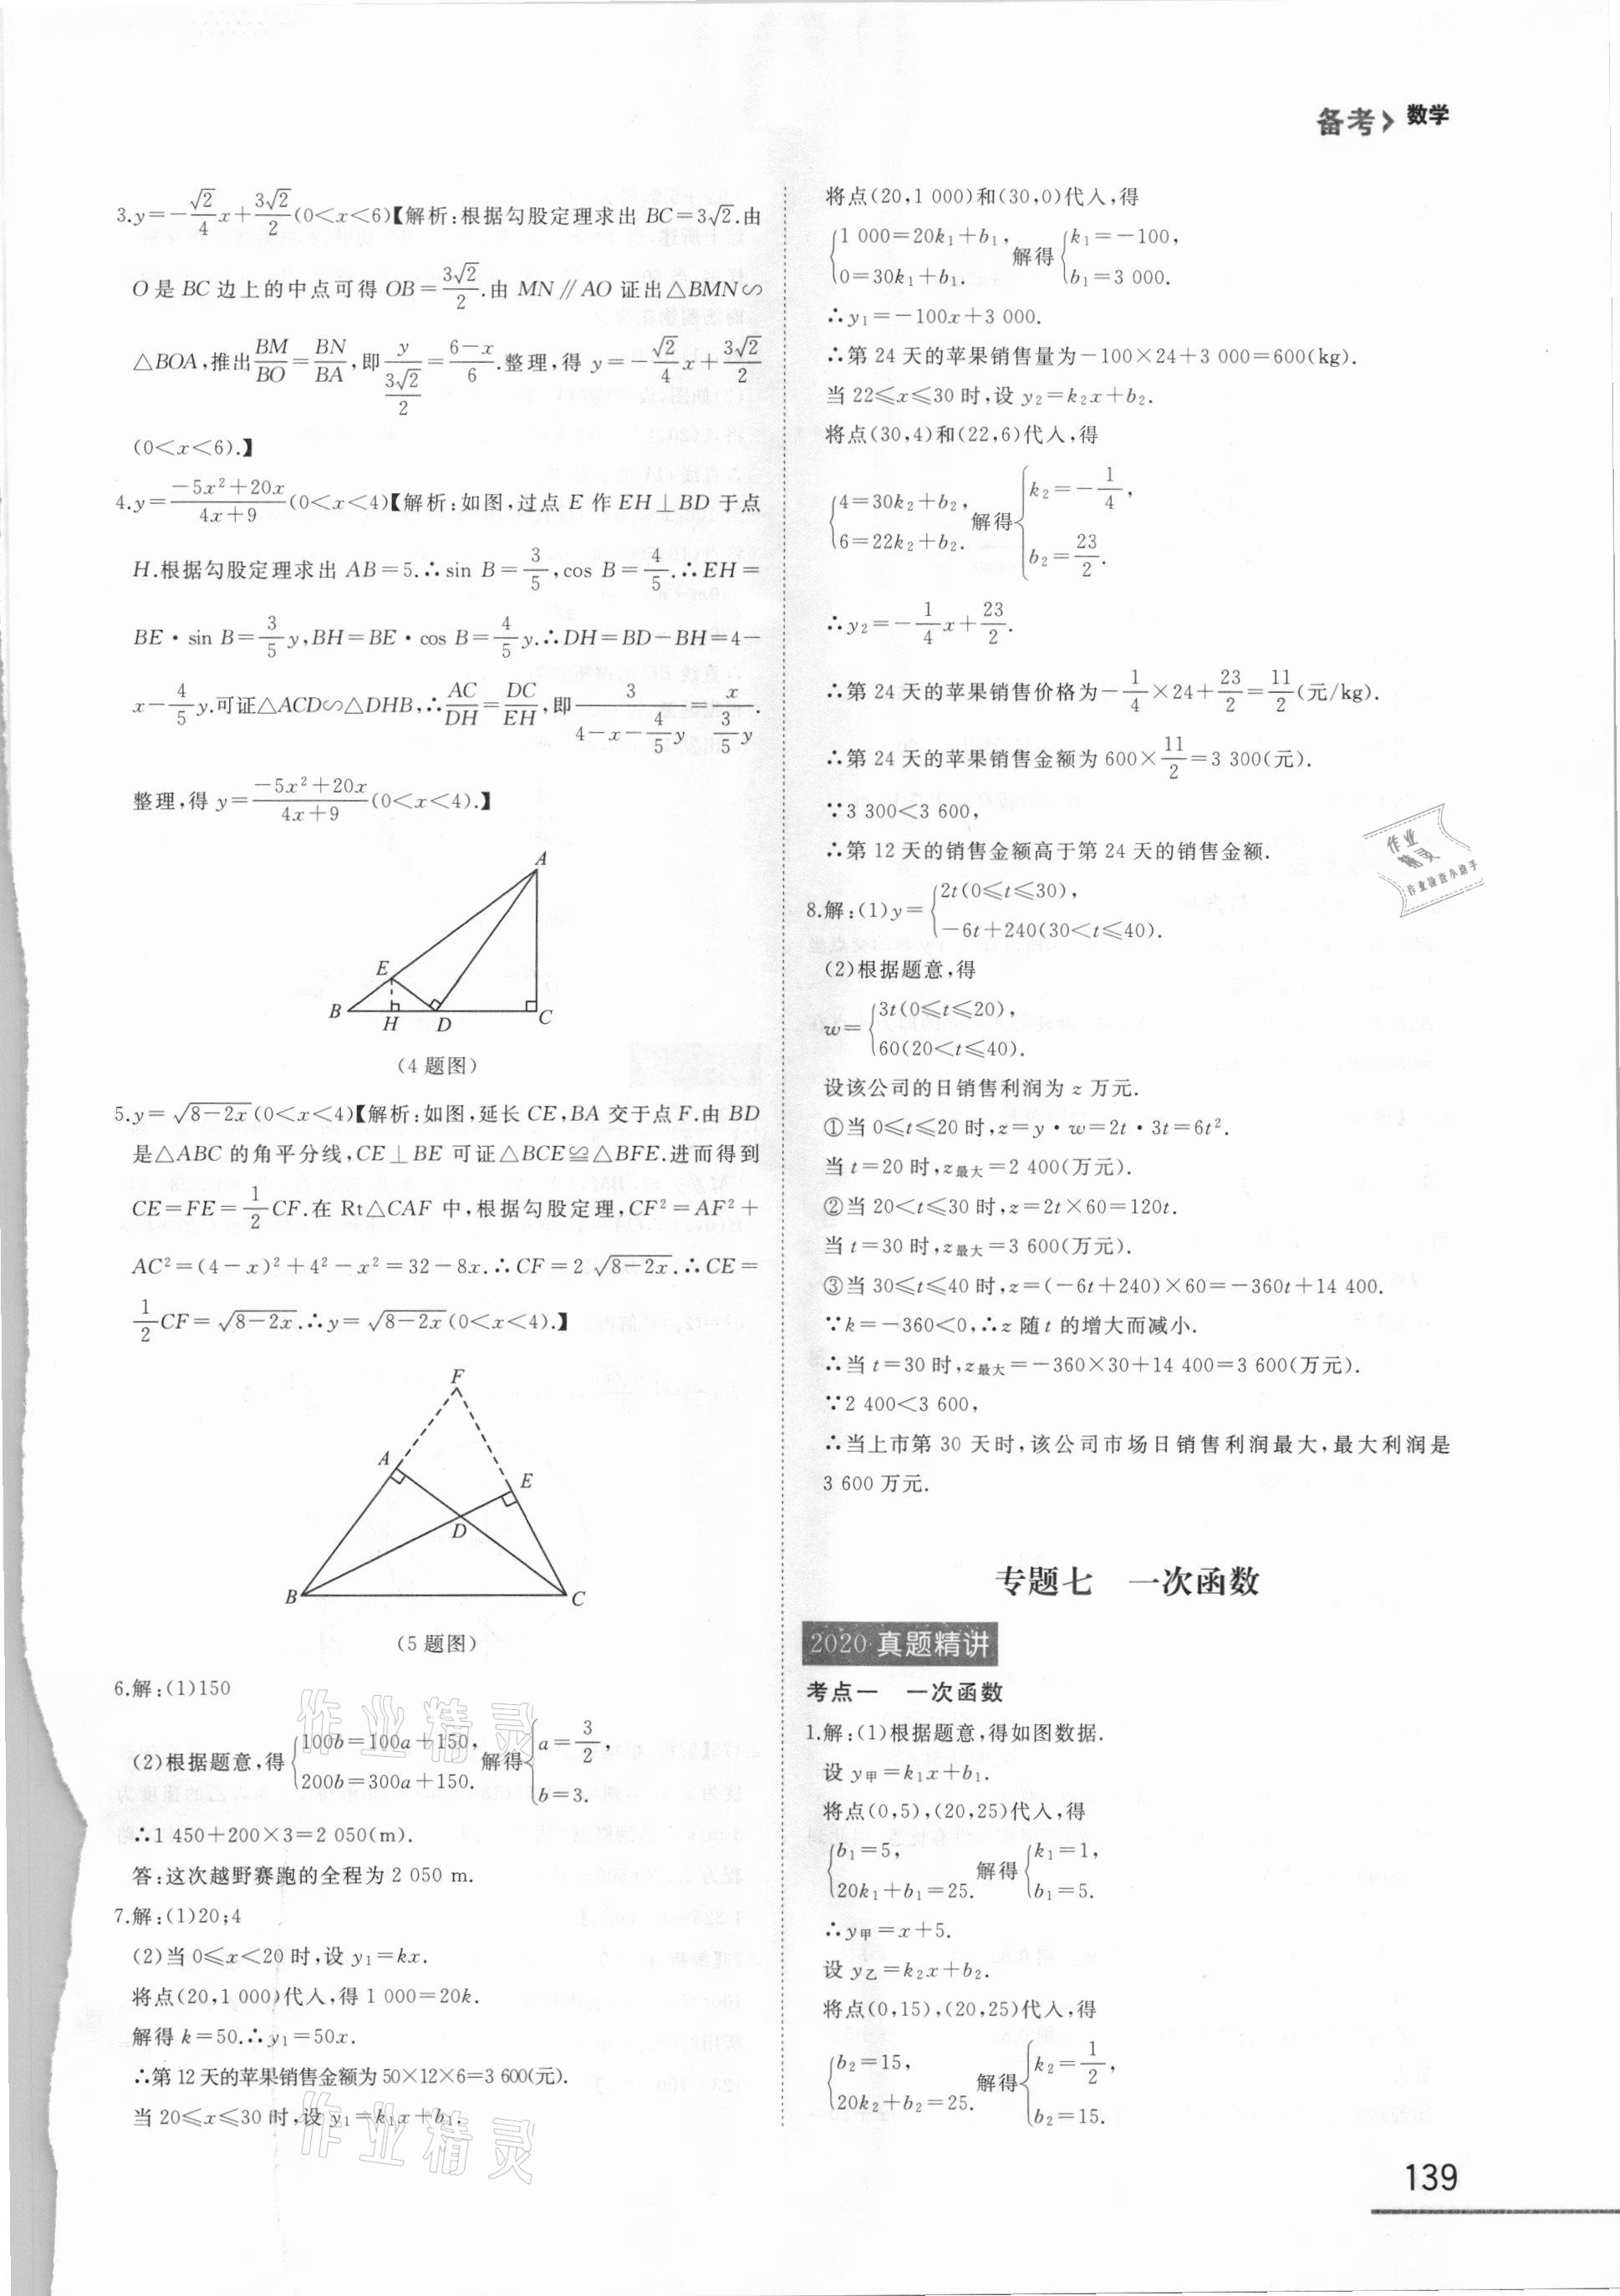 备考> 数学
3.y=-\frac{\sqrt{2}}{4}x+\frac{3\sqrt{2}}{2}(0<x<6)【解析:根据勾股定理求出 BC=3\sqrt{2}.由
O 是 BC 边上的中点可得 OB=\frac{3\sqrt{2}}{2}.由 MN∥AO 证出△BMN∽
△BOA,推出\frac{BM}{BO}=\frac{BN}{BA},即\frac{y}{\frac{3\sqrt{2}}{2}}=\frac{6-x}{6}.整理,得 y=-\frac{\sqrt{2}}{4}x+\frac{3\sqrt{2}}{2}
(0<x<6).】
4.y=\frac{-5x²+20x}{4x+9}(0<x<4)【解析:如图,过点 E 作 EH⊥BD 于点
H.根据勾股定理求出 AB=5.∴sin B=\frac{3}{5},cos B=\frac{4}{5}.∴EH=
BE·sin B=\frac{3}{5}y,BH=BE·cos B=\frac{4}{5}y.∴DH=BD-BH=4-
x-\frac{4}{5}y.可证△ACD∽△DHB,∴\frac{AC}{DH}=\frac{DC}{EH},即\frac{3}{4-x-\frac{4}{5}y}=\frac{x}{\frac{3}{5}y}.
整理,得 y=\frac{-5x²+20x}{4x+9}(0<x<4).】
A
E
B
H
D
C
(4 题图)
5.y=\sqrt{8-2x}(0<x<4)【解析:如图,延长 CE,BA 交于点 F.由 BD
是△ABC 的角平分线,CE⊥BE 可证△BCE≌△BFE.进而得到
CE=FE=\frac{1}{2}CF.在 Rt△CAF 中,根据勾股定理,CF²=AF²+
AC²=(4-x)²+4²-x²=32-8x.∴CF=2\sqrt{8-2x}.∴CE=
\frac{1}{2}CF=\sqrt{8-2x}.∴y=\sqrt{8-2x}(0<x<4).】
F
A
E
D
B
C
(5 题图)
6.解:(1)150
(2)根据题意,得{100b=100a+150, 200b=300a+150. 解得{a=\frac{3}{2}, b=3.
∴1 450+200×3=2 050(m).
答:这次越野赛跑的全程为 2 050 m.
7.解:(1)20;4
(2)当 0≤x<20 时,设 y₁=kx.
将点(20,1 000)代入,得 1 000=20k.
解得 k=50.∴y₁=50x.
∴第 12 天的苹果销售金额为 50×12×6=3 600(元).
当 20≤x≤30 时,设 y₁=k₁x+b₁.
将点(20,1 000)和(30,0)代入,得
{1 000=20k₁+b₁, 0=30k₁+b₁. 解得{k₁=-100, b₁=3 000.
∴y₁=-100x+3 000.
∴第 24 天的苹果销售量为-100×24+3 000=600(kg).
当 22≤x≤30 时,设 y₂=k₂x+b₂.
将点(30,4)和(22,6)代入,得
{4=30k₂+b₂, 6=22k₂+b₂. 解得{k₂=-\frac{1}{4}, b₂=\frac{23}{2}.
∴y₂=-\frac{1}{4}x+\frac{23}{2}.
∴第 24 天的苹果销售价格为-\frac{1}{4}×24+\frac{23}{2}=\frac{11}{2}(元/kg).
∴第 24 天的苹果销售金额为 600×\frac{11}{2}=3 300(元).
∵3 300<3 600,
∴第 12 天的销售金额高于第 24 天的销售金额.
8.解:(1)y={2t(0≤t≤30), -6t+240(30<t≤40).
(2)根据题意,得
w={3t(0≤t≤20), 60(20<t≤40).
设该公司的日销售利润为 z 万元.
①当 0≤t≤20 时,z=y·w=2t·3t=6t².
当 t=20 时,z最大=2 400(万元).
②当 20<t≤30 时,z=2t×60=120t.
当 t=30 时,z最大=3 600(万元).
③当 30≤t≤40 时,z=(-6t+240)×60=-360t+14 400.
∵k=-360<0,∴z 随 t 的增大而减小.
∴当 t=30 时,z最大=-360×30+14 400=3 600(万元).
∵2 400<3 600,
∴当上市第 30 天时,该公司市场日销售利润最大,最大利润是
3 600 万元.
专题七 一次函数
2020·真题精讲
考点一 一次函数
1.解:(1)根据题意,得如图数据.
设 y甲=k₁x+b₁.
将点(0,5),(20,25)代入,得
{b₁=5, 20k₁+b₁=25. 解得{k₁=1, b₁=5.
∴y甲=x+5.
设 y乙=k₂x+b₂.
将点(0,15),(20,25)代入,得
{b₂=15, 20k₂+b₂=25. 解得{k₂=\frac{1}{2}, b₂=15.
139
作业精灵
作业精灵
作业
精灵
作业检查小助手